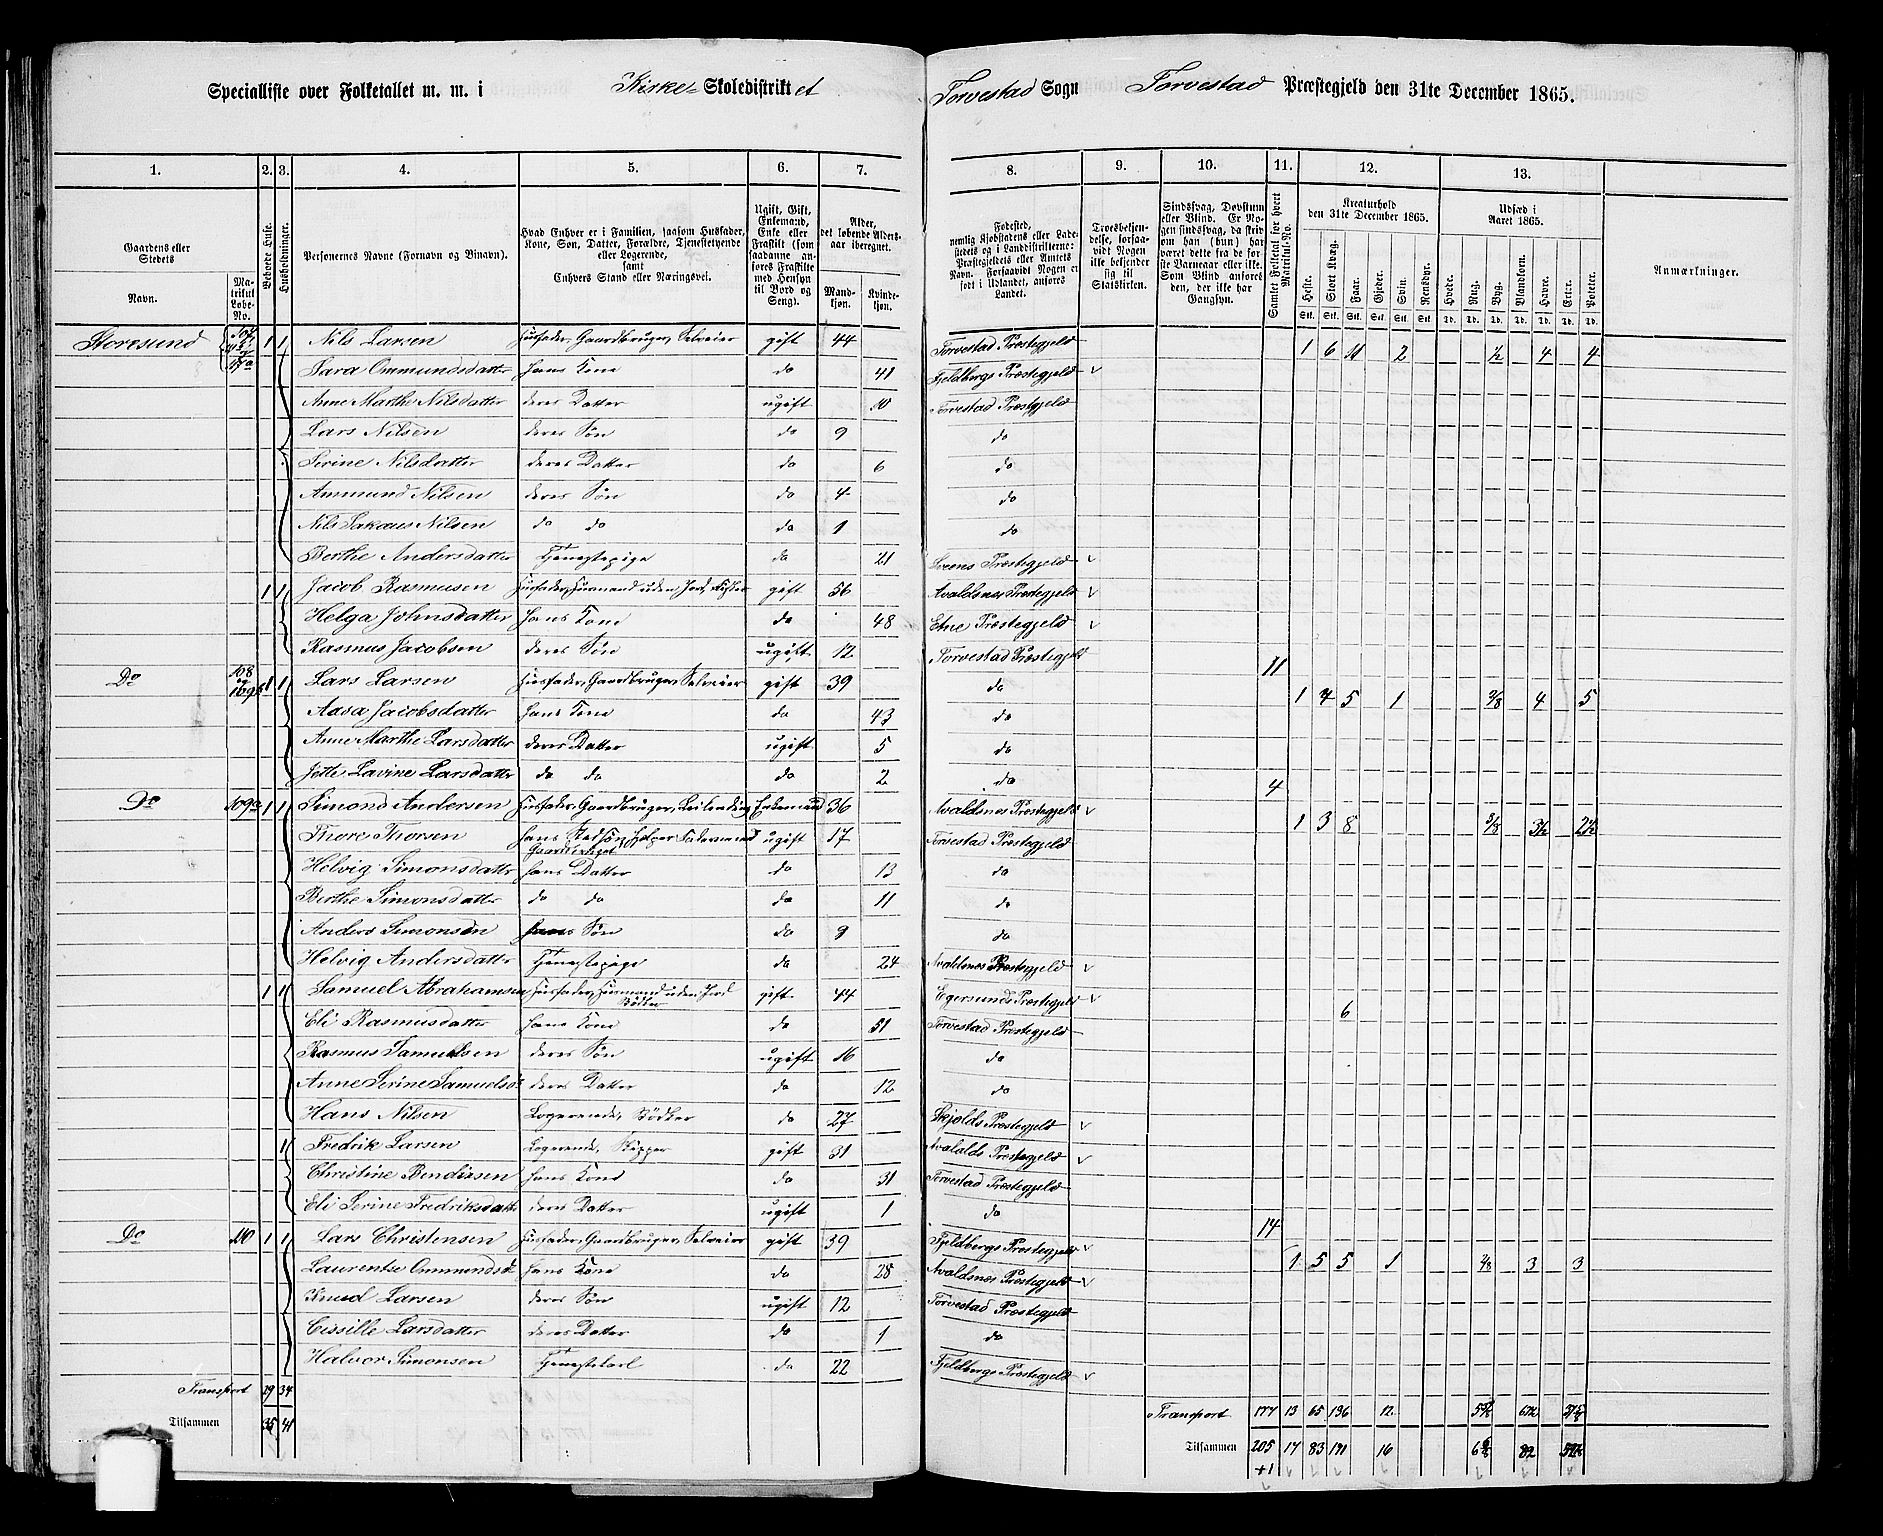 Specialliste over Folketallet m. m. i Kirke- Skoledistriktet Torvestad Sogn Torvestad Præstegjeld den 31te December 1865.
1. 2. 3. 4. 5. 6. 7. 8. 9. 10. 11. 12. 13.
Gaardens eller Stedets Navn.
Matrikul Løbe-No.
Beboede Huse.
Husholdninger.
Personernes Navne (Fornavn og Binavn).
Hvad Enhver er i Familien, saasom Husfader, Kone, Søn, Datter, Forældre, Tjenestetyende eller Logerende, samt Enhvers Stand eller Næringsvei.
Ugift, Gift, Enkemand, Enke eller Fraskilt (som saadanne anføres Fraskilte med Hensyn til Bord og Seng).
Alder, det løbende Aldersaar iberegnet.
Mandkjøn. Kvindekjøn.
Fødested, nemlig Kjøbstadens eller Ladestedets og i Landdistrikterne: Præstegjeldets eller Amtets Navn. Forsaavidt Nogen er født i Udlandet, anføres Landet.
Troesbekjendelse, forsaavidt Nogen ikke bekjender sig til Statskirken.
Sindssvag, Døvstum eller Blind. Er Nogen sindssvag, da skrid om han (hun) har været dette fra før Varneaar eller ikke. Som Blind anføres den, der ikke har Gangsyn.
Samlet Folketal for hvert Matrikul-No.
Kreaturhold den 31te December 1865.
Heste. Stort Kvæg. Faar. Gjeder. Sviin. Rensdyr.
Udsæd i Aaret 1865.
Hvede. Rug. Byg. Blandkorn. Havre. Erter. Poteter.
Anmærkninger.
Storesund 1 1 Nils Larsen Husfader, Gaardbruger, Selveier gift 44 Torvestad Præstegjeld 1 6 11 2 ½ 4 4
Sara Ommundsdatter hans Kone do 41 Fjeldbergs Præstegjeld
Anne Marthe Nilsdatter deres Datter ugift 10 Torvestad Præstegjeld
Lars Nilsen deres Søn do 9 do
Serine Nilsdatter deres Datter do 6 do
Ammund Nilsen deres Søn do 4 do
Nils Nilsen do do do 1 do
Berthe Andersdatter Tjenestepige do 21 Præstegjeld
1 1 Jacob Rasmusen Husfader, Husmand uden Jord, Fisker gift 56 Avaldsnes Præstegjeld
Helga Johnsdatter hans Kone do 48 Etne Præstegjeld
Rasmus Jacobsen deres Søn ugift 12 Torvestad Præstegjeld 11
Do 108 og 1 1 Lars Larsen Husfader, Gaardbruger, Selveier gift 39 do 1 7 5 1 3/8 4 5
Aasa Jacobsdatter hans Kone do 43 do
Anne Marthe Larsdatter deres Datter ugift 5 do
Jette Lavine Larsdatter do do do 2 do 4
Do 109a 1 1 Simond Andersen Husfader, Gaardbruger, Leilending Enkemand 36 Avaldsnes Præstegjeld 1 3 8 3/8 3½ 2½
Thore Thorsen hans Stedsøn, hjelper Faderen med Gaardsbruget ugift 17 Torvestad Præstegjeld
Helvig Simonsdatter hans Datter do 13 do
Berthe Simonsdatter do do do 11 do
Anders Simonsen hans Søn do 9 do
Helvig Andersdatter Tjenestepige do 24 Avaldsnes Præstegjeld
1 1 Samuel Abrahamsen Husfader, Husmand uden Jord Bødker gift 44 Egersunds Præstegjeld 6
Eli Rasmusdatter hans Kone do 51 Torvestad Præstegjeld
Rasmus Samuelsen deres Søn ugift 16 do
Anne Serine Samuelsd. deres Datter do 12 do
Hans Nilsen Logerende, Bødker do 27 Skjolds Præstegjeld
1 Fredrik Larsen Logerende, Skipper gift 31 Præstegjeld
Christine Bendixsen hans Kone do 31 Torvestad Præstegjeld
Eli Serine Fredriksdatter deres Datter ugift 1 do 14
Do 110 1 1 Lars Christensen Husfader, Gaardbruger, Selveier gift 39 Fjeldbergs Præstegjeld 1 5 5 1 4/8 3 3
Laurentse Ommundsd. hans Kone do 28 Avaldsnes Præstegjeld
Knud Larsen deres Søn ugift 12 Torvestad Præstegjeld
Cissille Larsdatter deres Datter do 1 do
Halvor Simonsen Tjenestekarl do 22 Fjeldbergs Præstegjeld
Transport 29 34 Transport 177 13 65 136 12
Tilsammen 35 41 Tilsammen 205 17 83 171 16
+1